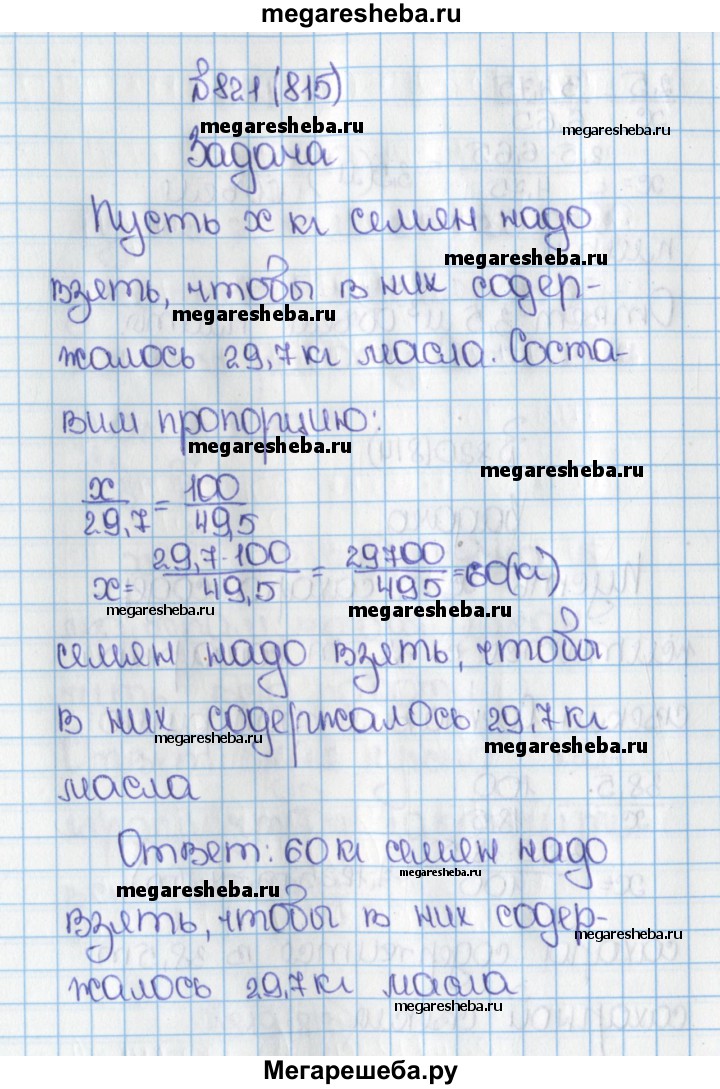 megaresheba.ru
№821 (815)
megaresheba.ru
megaresheba.ru
Задача
Пусть x кг семян надо
megaresheba.ru
взять, чтобы в них содер-
megaresheba.ru
жалось 29,7 кг масла. Соста-
вим пропорцию:
megaresheba.ru
megaresheba.ru
x/29,7 = 100/49,5
x = 29,7·100/49,5 = 29700/495 = 60(кг)
megaresheba.ru
megaresheba.ru
семян надо взять, чтобы
в них содержалось 29,7 кг
megaresheba.ru
megaresheba.ru
масла
Ответ: 60 кг семян надо
megaresheba.ru
megaresheba.ru
взять, чтобы в них содер-
megaresheba.ru
жалось 29,7 кг масла
megaresheba.ru
Мегарешеба.ру